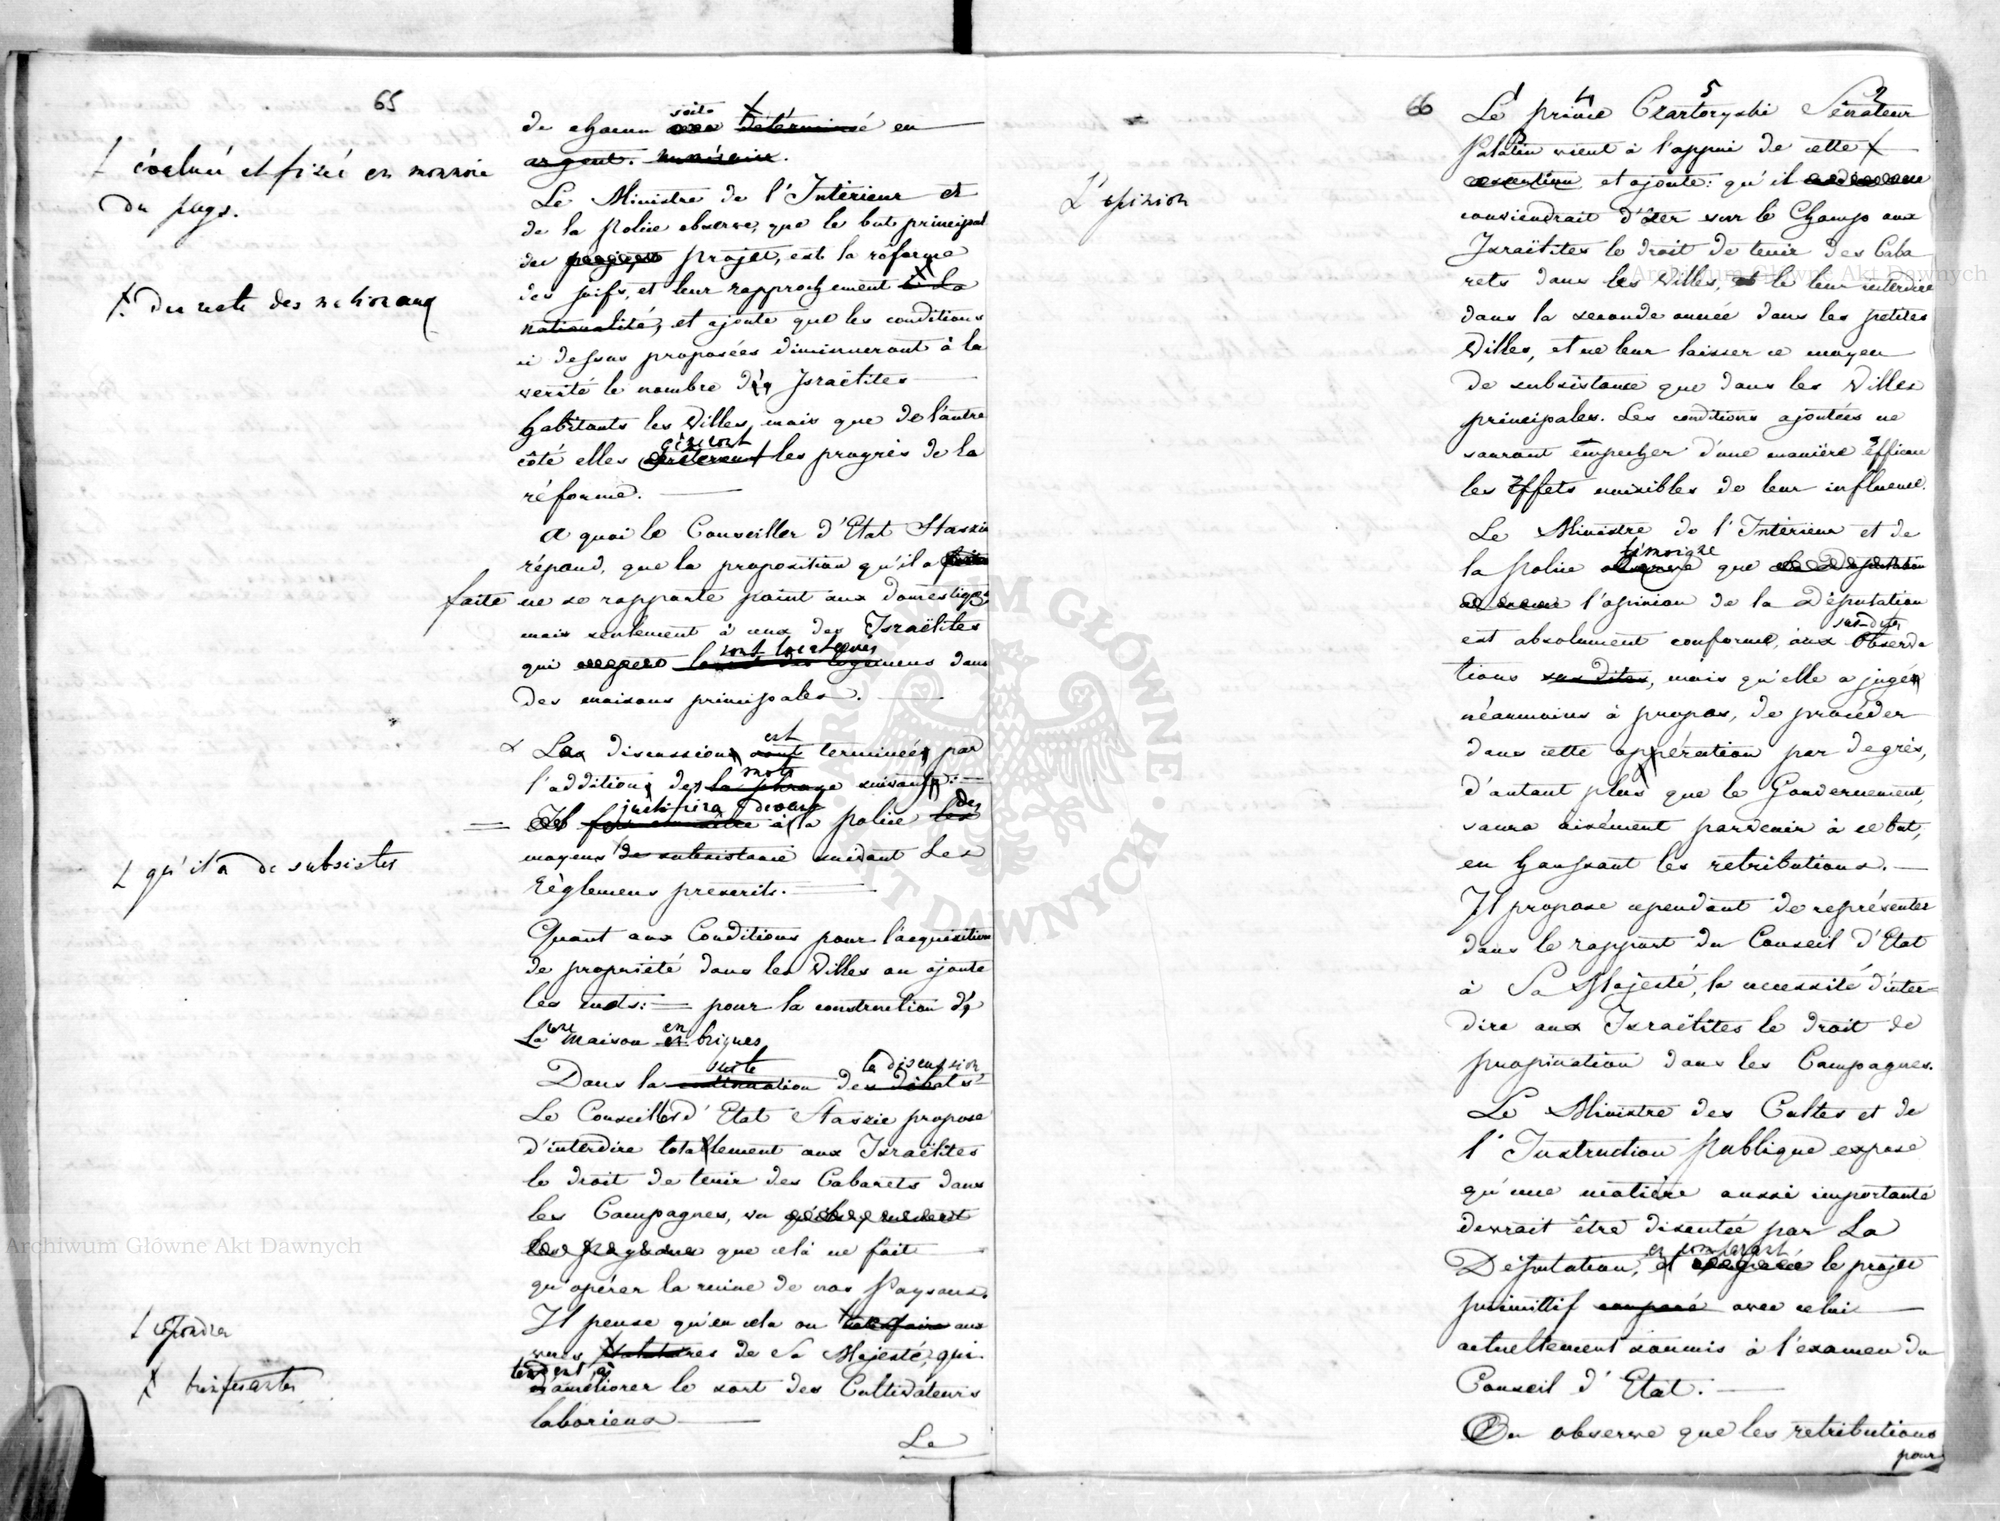 65
de chacun soit déterminé en
argent. numéraire.
L évalué et fixé en monnoie
du pays.
Le Ministre de l'Intérieur et
de la Police observe, que le but principal
du projet, est la réforme
des juifs, et leur rapprochement à la
nationalité, et ajoute que les conditions
X. du reste des nationaux
ci dessus proposées diminueront à la
verité le nombre d's Israëlites
habitants les Villes, mais que de l'autre
côté elles gêneront les progrès de la
réforme.
A quoi le Conseiller d'Etat Staszic
répond, que la proposition qu'il a
faite ne se rapporte point aux domestiques
mais seulement à ceux des Israëlites
qui sont locataires des logemens dans
des maisons principales.
La discussion est terminée, par
l'addition des mots suivans:
= Il justifiera devant la Police des
moyens de subsistance suivant les
L qu'il a de subsister
Règlemens prescrits. =
Quant aux Conditions pour l'acquisition
de propriété dans les Villes on ajoute
les mots: = pour la construction d'
une maison en briques
Dans la suite de la discussion
continuation des débats
Le Conseiller d'Etat Staszic propose
d'interdire totallement aux Israëlites
le droit de tenir des Cabarets dans
les Campagnes, vu
que celà ne fait
qu'opérer la ruine de nos Paysans.
Il pense qu'en cela on satisfaire aux
vues salutaires de Sa Majesté, qui
tendent à améliorer le sort des Cultivateurs
laborieux
Le
66
Le prince Czartoryski Sénateur
1 4 5 2
Palatin vient à l'appui de cette
L'opinion
et ajoute: qu'il
conviendrait d'ôter sur le Champ aux
Israëlites le droit de tenir des Caba
rets dans les Villes, et le leur interdire
dans la seconde année dans les petites
Villes, et ne leur laisser ce moyen
de subsistance que dans les Villes
principales. Les conditions ajoutées ne
sauront empecher d'une manière efficace
les Effets nuisibles de leur influence.
Le Ministre de l'Intérieur et de
la Police témoigne que la Députation
l'opinion de la Députation
est absolument conforme, aux susdites Observa
tions sus dites, mais qu'elle a jugé
néanmoins à propos, de procéder
dans cette oppération par degrés,
d'autant plus que le Gouvernement,
saura aisément parvenir à ce but,
en haussant les retributions.
Il propose cependant de représenter
dans le rapport du Conseil d'Etat
à Sa Majesté, la necessité d'inter-
dire aux Israëlites le droit de
propination dans les Campagnes.
Le Ministre des Cultes et de
l'Instruction Publique expose
qu'une matière aussi importante
devrait être discutée par La
Députation, en comparant le projet
primitif comparé avec celui
actuellement soumis à l'examen du
Conseil d'Etat.
On observe que les retributions
pour
Archiwum Główne Akt Dawnych
Archiwum Główne Akt Dawnych
ARCHIWUM GŁÓWNE · AKT DAWNYCH ·